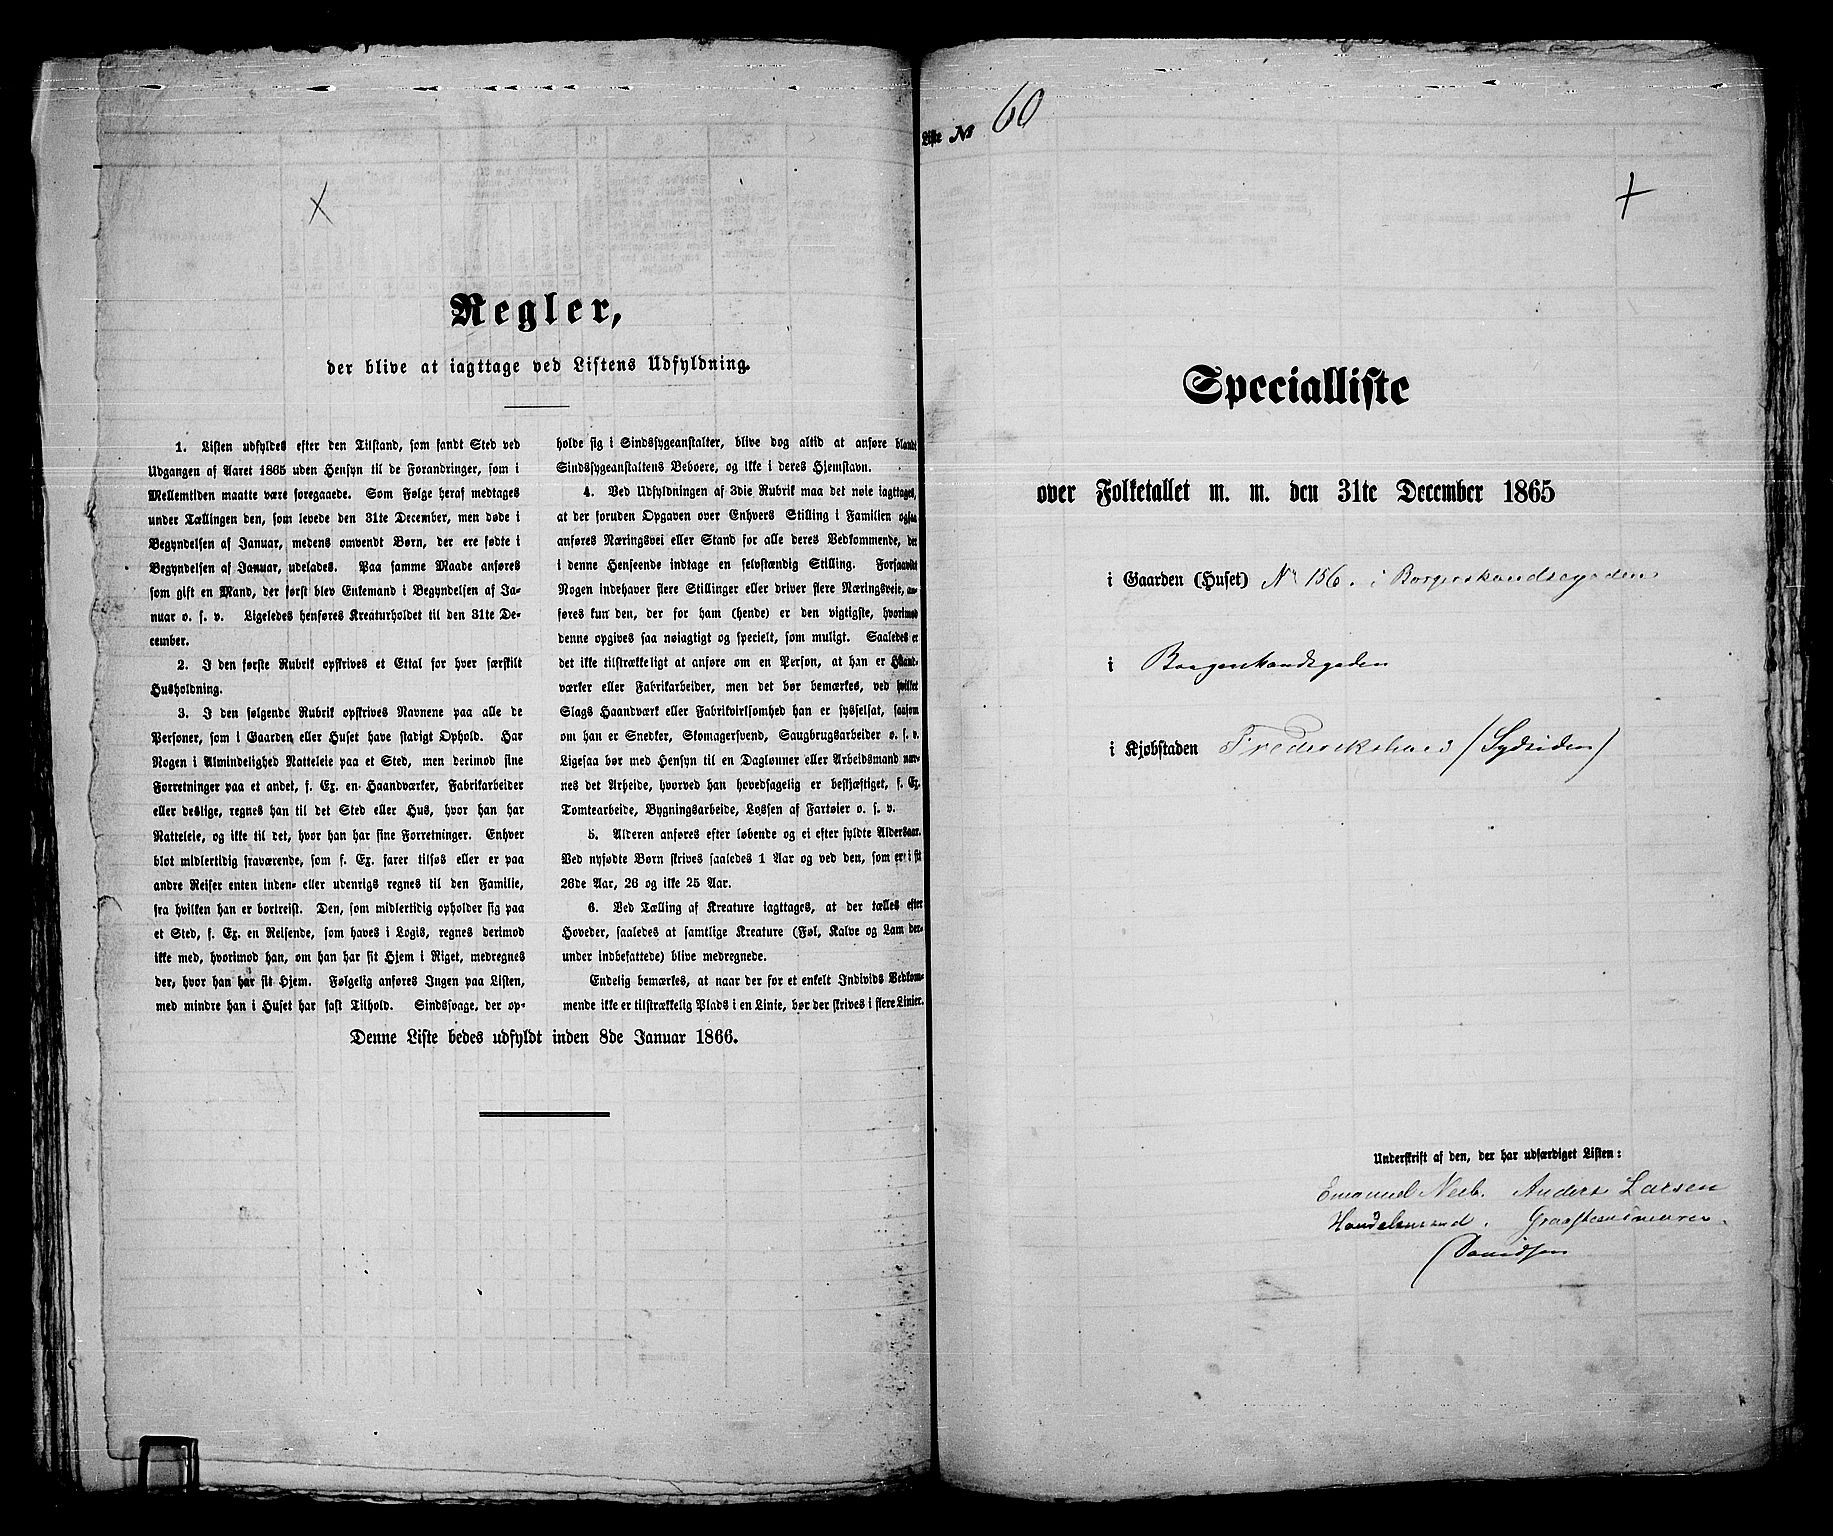 Regler,
der blive at iagttage ved Listens Udfyldning.
1. Listen udfyldes efter den Tilstand, som fandt Sted ved
Udgangen af Aaret 1865 uden Hensyn til de Forandringer, som i
Mellemtiden maatte være foregaaede. Som Følge heraf medtages
under Tællingen den, som levede den 31te December, men døde i
Begyndelsen af Januar, medens omvendt Børn, der ere fødte i
Begyndelsen af Januar, udelades. Paa samme Maade anføres
som gift en Mand, der først blev Enkemand i Begyndelsen af Ja-
nuar o. s. v. Ligeledes henføres Kreaturholdet til den 31te De-
cember.
2. I den første Rubrik opskrives et Ettal for hver særskilt
Husholdning.
3. I den følgende Rubrik opskrives Navnene paa alle de
Personer, som i Gaarden eller Huset have stadigt Ophold. Har
Nogen i Almindelighed Natteleie paa et Sted, men derimod sine
Forretninger paa et andet, f. Ex. en Haandværker, Fabrikarbeider
eller deslige, regnes han til det Sted eller Hus, hvor han har
Natteleie, og ikke til det, hvor han har sine Forretninger. Enhver
blot midlertidig fraværende, som f. Ex. farer tilsøs eller er paa
andre Reiser enten inden- eller udenrigs regnes til den Familie,
fra hvilken han er bortreist. Den, som midlertidig opholder sig paa
et Sted, f. Ex. en Reisende, som haves i Logis, regnes derimod
ikke med, hvorimod han, om han har sit Hjem i Riget, medregnes
der, hvor han har sit Hjem. Følgelig anføres Ingen paa Listen,
med mindre han i Huset har fast Tilhold. Sindssvage, der op-
holde sig i Sindssygeanstalter, blive dog altid at anføre blandt
Sindssygeanstaltens Beboere, og ikke i deres Hjemstavn.
4. Ved Udfyldningen af 3die Rubrik maa det nøie iagttages,
at der foruden Opgaven over Enhvers Stilling i Familien ogsaa
anføres Næringsvei eller Stand for alle deres Vedkommende, der
i denne Henseende indtage en selvstændig Stilling. Forsaavidt
Nogen indehaver flere Stillinger eller driver flere Næringsveie, an-
føres kun den, der for ham (hende) er den vigtigste, hvorimod
denne opgives saa nøiagtigt og specielt, som muligt. Saaledes er
det ikke tilstrækkeligt at anføre om en Person, at han er Haand-
værker eller Fabrikarbeider, men det bør bemærkes, ved hvilket
Slags Haandværk eller Fabrikvirksomhed han er sysselsat, saasom
om han er Snedker, Skomagersvend, Saugbrugsarbeider o. s. v.
Ligesaa bør med Hensyn til en Dagløнner eller Arbeidsmand næv-
nes det Arbeide, hvorved han hovedsagelig er beskjæftiget, f. Ex.
Tomtearbeide, Bygningsarbeide, Lossen af Fartøier o. s. v.
5. Alderen anføres efter løbende og ei efter fyldte Aldersaar.
Ved nyfødte Børn skrives saaledes 1 Aar og ved den, som er i sit
26de Aar, 26 og ikke 25 Aar.
6. Ved Tælling af Kreature iagttages, at der tælles efter
Hoveder, saaledes at samtlige Kreature (Føl, Kalve og Lam der-
under indbefattede) blive medregnede.
Endelig bemærkes, at naar der for et enkelt Individs Vedkom-
mende ikke er tilstrækkelig Plads i en Linie, bør der skrives i flere Linier.
Denne Liste bedes udfyldt inden 8de Januar 1866.
Liste № 60
Specialliste
over Folketallet m. m. den 31te December 1865
i Gaarden (Huset) No 156. i Borgerskandsegaden
i Borgerskandsgaden
i Kjøbstaden Frederikshald (Sydsiden)
Underskrift af den, der har udfærdiget Listen:
Emanuel Anders Larsen
Handelsmand. Graastensmurer.
Davidsen